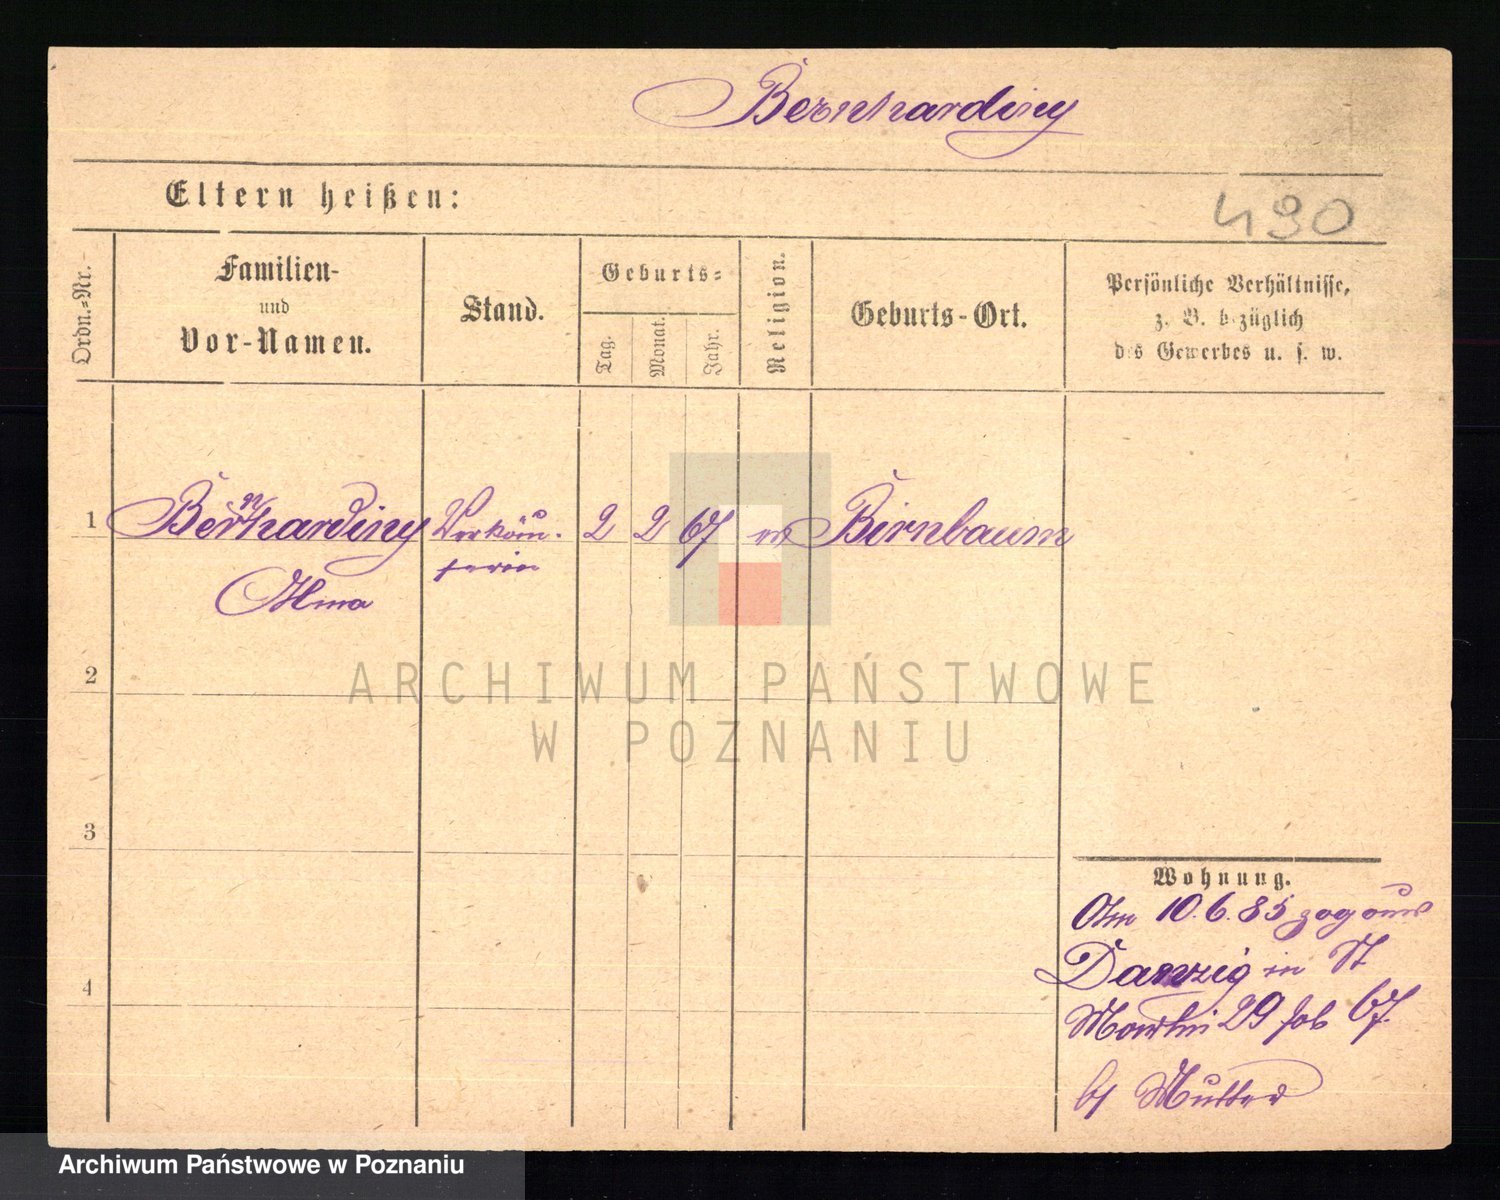 Bernhardiny
Eltern heißen:
490
Ordn.-Nr.
Familien-
und
Vor-Namen.
Stand.
Geburts-
Tag.
Monat.
Jahr.
Religion.
Geburts-Ort.
Persönliche Verhältnisse,
z. B. bezüglich
des Gewerbes u. s. w.
1 Bernhardiny Verkäu- 2 2 67 Birnbaum
ferin
Alma
ARCHIWUM PAŃSTWOWE
W POZNANIU
2
3
4
Wohnung.
Am 10.6.85 zog aus
Danzig in St
Martin 29 67.
b/ Mutter
Archiwum Państwowe w Poznaniu